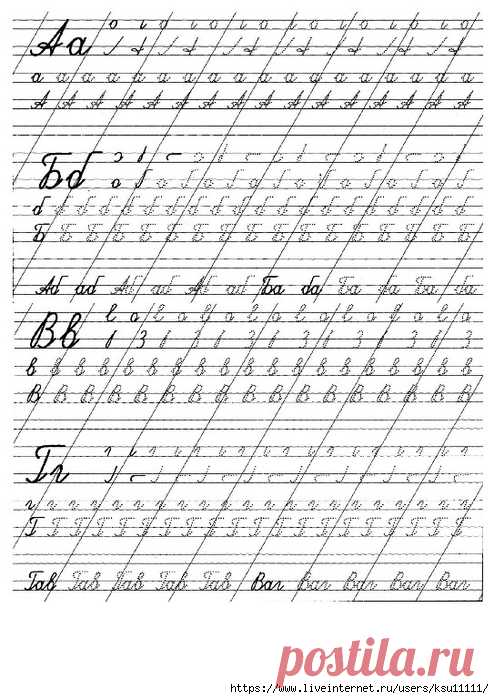 Аа
а а а а а а а а а а а а а а а а а а
А А А А А А А А А А А А А А А А
Бб
б б б б б б б б б б б б б б б б б б б б
Б Б Б Б Б Б Б Б Б Б Б Б Б Б Б Б Б
Аб аб Аб аб Аб аб Ба ба Ба ба Ба ба
Вв
в в в в в в в в в в в в в в в в в в в
В В В В В В В В В В В В В В В В В
Гг
г г г г г г г г г г г г г г г г г г г г г г г
Г Г Г Г Г Г Г Г Г Г Г Г Г Г Г Г
Гав Гав Гав Гав Гав Ваг Ваг Ваг Ваг Ваг
postila.ru
https://www.liveinternet.ru/users/ksu11111/